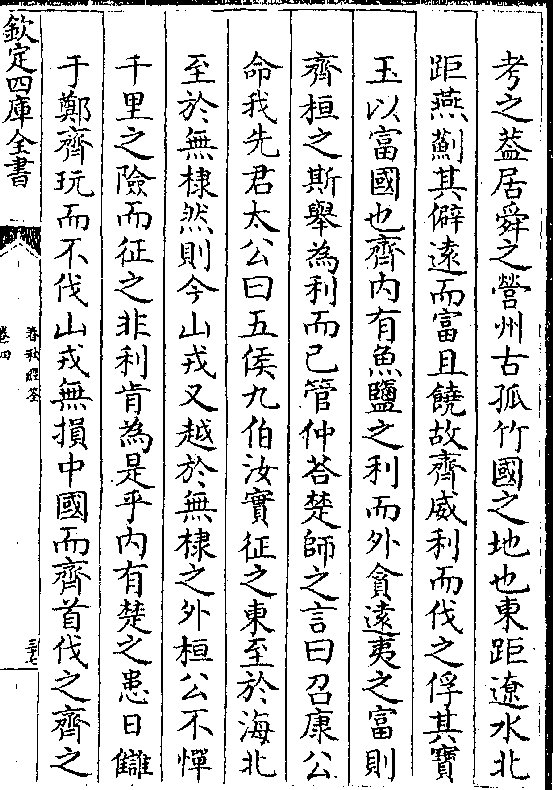 考之蓋居舜之營州古孤竹國之地也東距遼水北
距燕薊其僻遠而富且饒故齊威利而伐之俘其寶
玉以富國也齊内有魚鹽之利而外貪遠夷之富則
齊桓之斯舉為利而已管仲荅楚師之言曰召康公
命我先君太公曰五侯九伯汝實征之東至於海北
至於無棣然則今山戎又越於無棣之外桓公不憚
千里之險而征之非利肯為是乎内有楚之患日讎
于鄭齊玩而不伐山戎無損中國而齊首伐之齊之
欽定四庫全書
春秋經筌
卷四
三十七